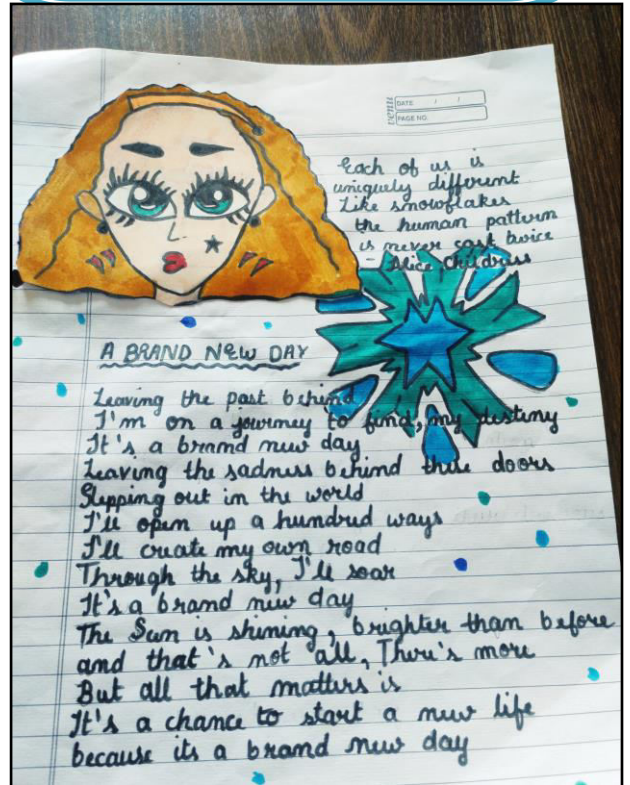 venu
DATE / /
PAGE NO.
Each of us is
uniquely different
Like snowflakes
the human pattern
is never cast twice
- Alice Childress
A BRAND NEW DAY
Leaving the past behind
I'm on a journey to find, my destiny
It's a brand new day
Leaving the sadness behind these doors
Stepping out in the world
I'll open up a hundred ways
I'll create my own road
Through the sky, I'll soar
It's a brand new day
The Sun is shining, brighter than before
and that's not all, There's more
But all that matters is
It's a chance to start a new life
because its a brand new day